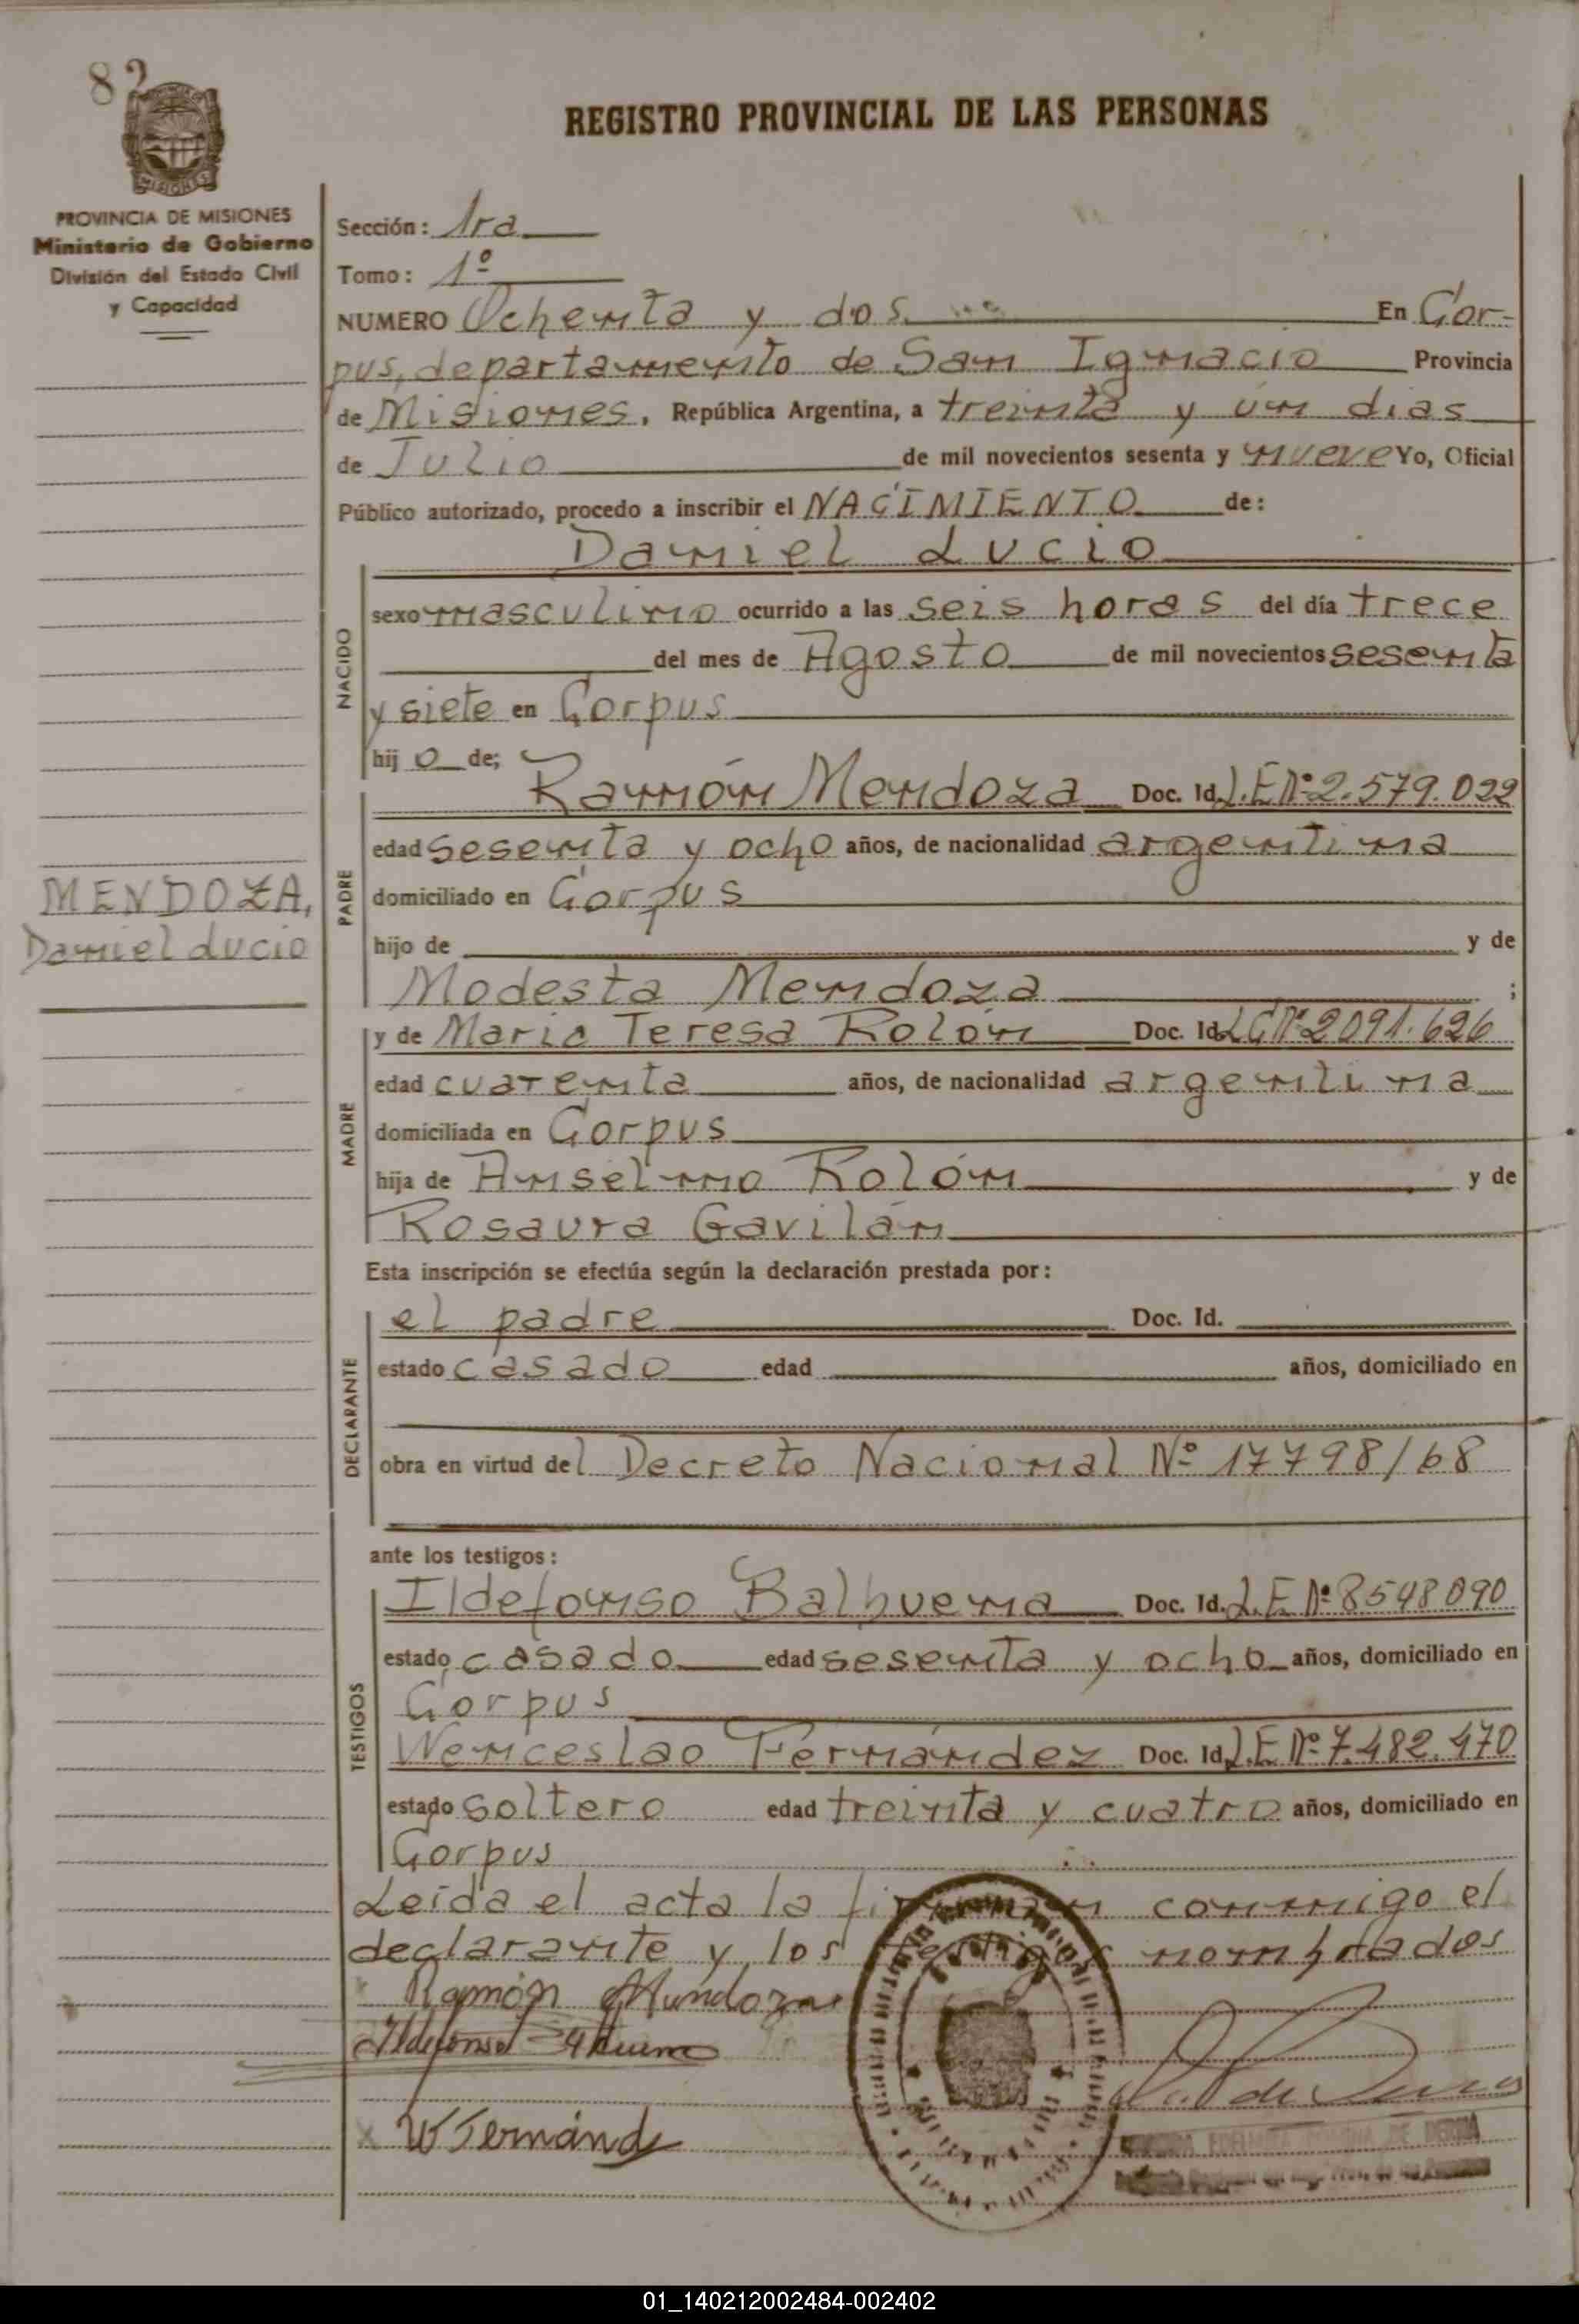 82
REGISTRO PROVINCIAL DE LAS PERSONAS
MISIONES
PROVINCIA DE MISIONES
Ministerio de Gobierno
División del Estado Civil
y Capacidad
Sección: 1ra
Tomo: 1º
NUMERO Ochenta y dos En Cor-
pus, departamento de San Ignacio Provincia
de Misiones, República Argentina, a treinta y ún dias
de Julio de mil novecientos sesenta y nueve Yo, Oficial
Público autorizado, procedo a inscribir el NACIMIENTO de:
Daniel Lucio
NACIDO
sexo masculino ocurrido a las seis horas del día trece
del mes de Agosto de mil novecientos sesenta
y siete en Corpus
hij o de;
Ramón Mendoza Doc. Id. L.E Nº 2.579.022
PADRE
edad sesenta y ocho años, de nacionalidad argentina
domiciliado en Corpus
MENDOZA,
Daniel Lucio
hijo de y de
Modesta Mendoza ;
y de Maria Teresa Rolón Doc. Id. LC Nº 2091.626
MADRE
edad cuarenta años, de nacionalidad argentina
domiciliada en Corpus
hija de Anselmo Rolón y de
Rosaura Gavilán
Esta inscripción se efectúa según la declaración prestada por:
DECLARANTE
el padre Doc. Id.
estado casado edad años, domiciliado en
obra en virtud del Decreto Nacional Nº 17798/68
ante los testigos:
TESTIGOS
Ildefonso Balbuena Doc. Id. L.E Nº 8548090
estado casado edad sesenta y ocho años, domiciliado en
Corpus
Wenceslao Fernández Doc. Id. L.E Nº 7.482.470
estado soltero edad treinta y cuatro años, domiciliado en
Corpus
Leída el acta la firman conmigo el
declarante y los testigos nombrados
Ramón Mundoza
Ildefonso
W Fernánd
01_140212002484-002402